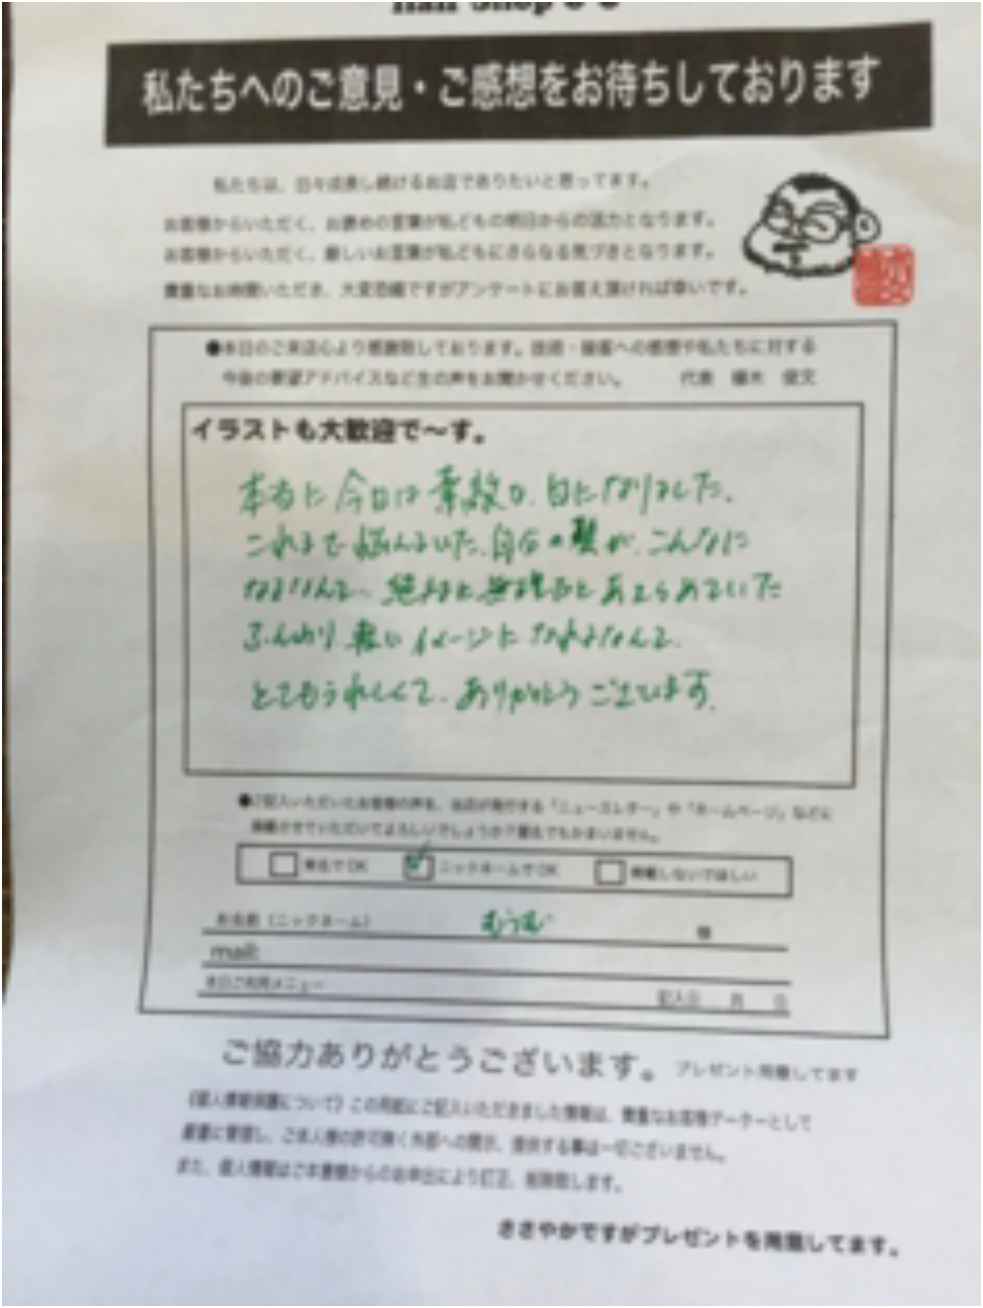 Hair Shop
私たちへのご意見・ご感想をお待ちしております
私たちは、日々成長し続けるお店でありたいと思ってます。
お客様からいただく、お褒めの言葉が私どもの明日からの活力となります。
お客様からいただく、厳しいお言葉が私どもにさらなる気づきとなります。
貴重なお時間いただき、大変恐縮ですがアンケートにお答え頂ければ幸いです。
●本日のご来店心より感謝致しております。技術・接客への感想や私たちに対する
今後の要望アドバイスなど生の声をお聞かせください。 代表
イラストも大歓迎で〜す。
本当に今日は素敵な日になりました。
これまで悩んでいた、自分の髪が、こんなに
なるなんて〜 絶対に無理だとあきらめていた
ふんわり軽いイメージになれるなんて、
とてもうれしくて、ありがとうございます。
●ご記入いただいたお客様の声を、当店が発行する「ニュースレター」や「ホームページ」などに
掲載させていただいてよろしいでしょうか？匿名でもかまいません。
実名でOK ニックネームでOK 掲載しないでほしい
お名前（ニックネーム） むうむ 様
mail:
本日ご利用メニュー 記入日 月 日
ご協力ありがとうございます。 プレゼント用意してます
《個人情報保護について》この用紙にご記入いただきました情報は、貴重なお客様データーとして
厳重に管理し、ご本人様の許可無く外部への開示、提供する事は一切ございません。
また、個人情報はご本人様からのお申出により訂正、削除致します。
ささやかですがプレゼントを用意してます。